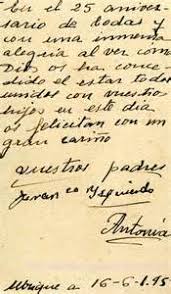 En el 25 aniver-
sario de bodas y
con una inmensa
alegria al ver como
Dios os ha conce-
dido el estar todos
unidos con vuestros
hijos en este dia
os felicitan con un
gran cariño
vuestros padres
Izquierdo
Antonia
Ubrique a 16-6-195